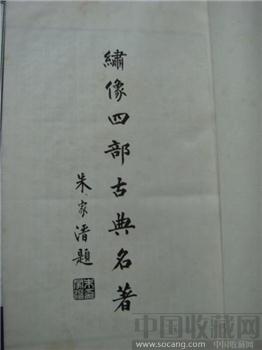 繡像四部古典名著
朱家溍題
中国收藏网
www.socang.com 中国收藏网